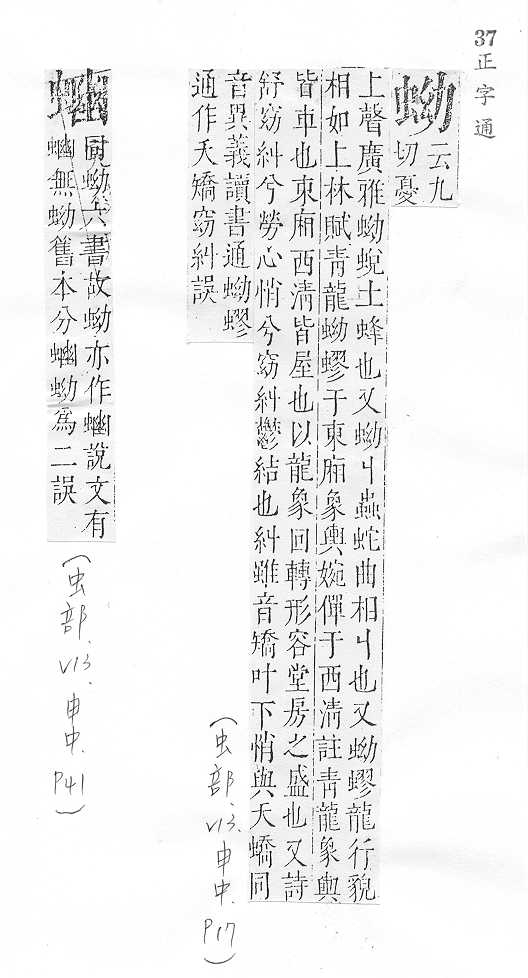 37正字通
蚴
云九
切憂
上聲廣雅蚴蛻土蜂也又蚴丩蟲蛇曲相丩也又蚴蟉龍行貌
相如上林賦青龍蚴蟉于東廂象輿婉僤于西清註青龍象輿
皆車也東廂西清皆屋也以龍象回轉形容堂房之盛也又詩
舒窈糾兮勞心悄兮窈糾鬱結也糾雖音矯叶下悄與夭蟜同
音異義讀書通蚴蟉
通作夭矯窈糾誤
(虫部、V13、申中、P17)
蠮
同蚴六書故蚴亦作䖻說文有
䖻無蚴舊本分䖻蚴爲二誤
(虫部、V13、申中、P41)